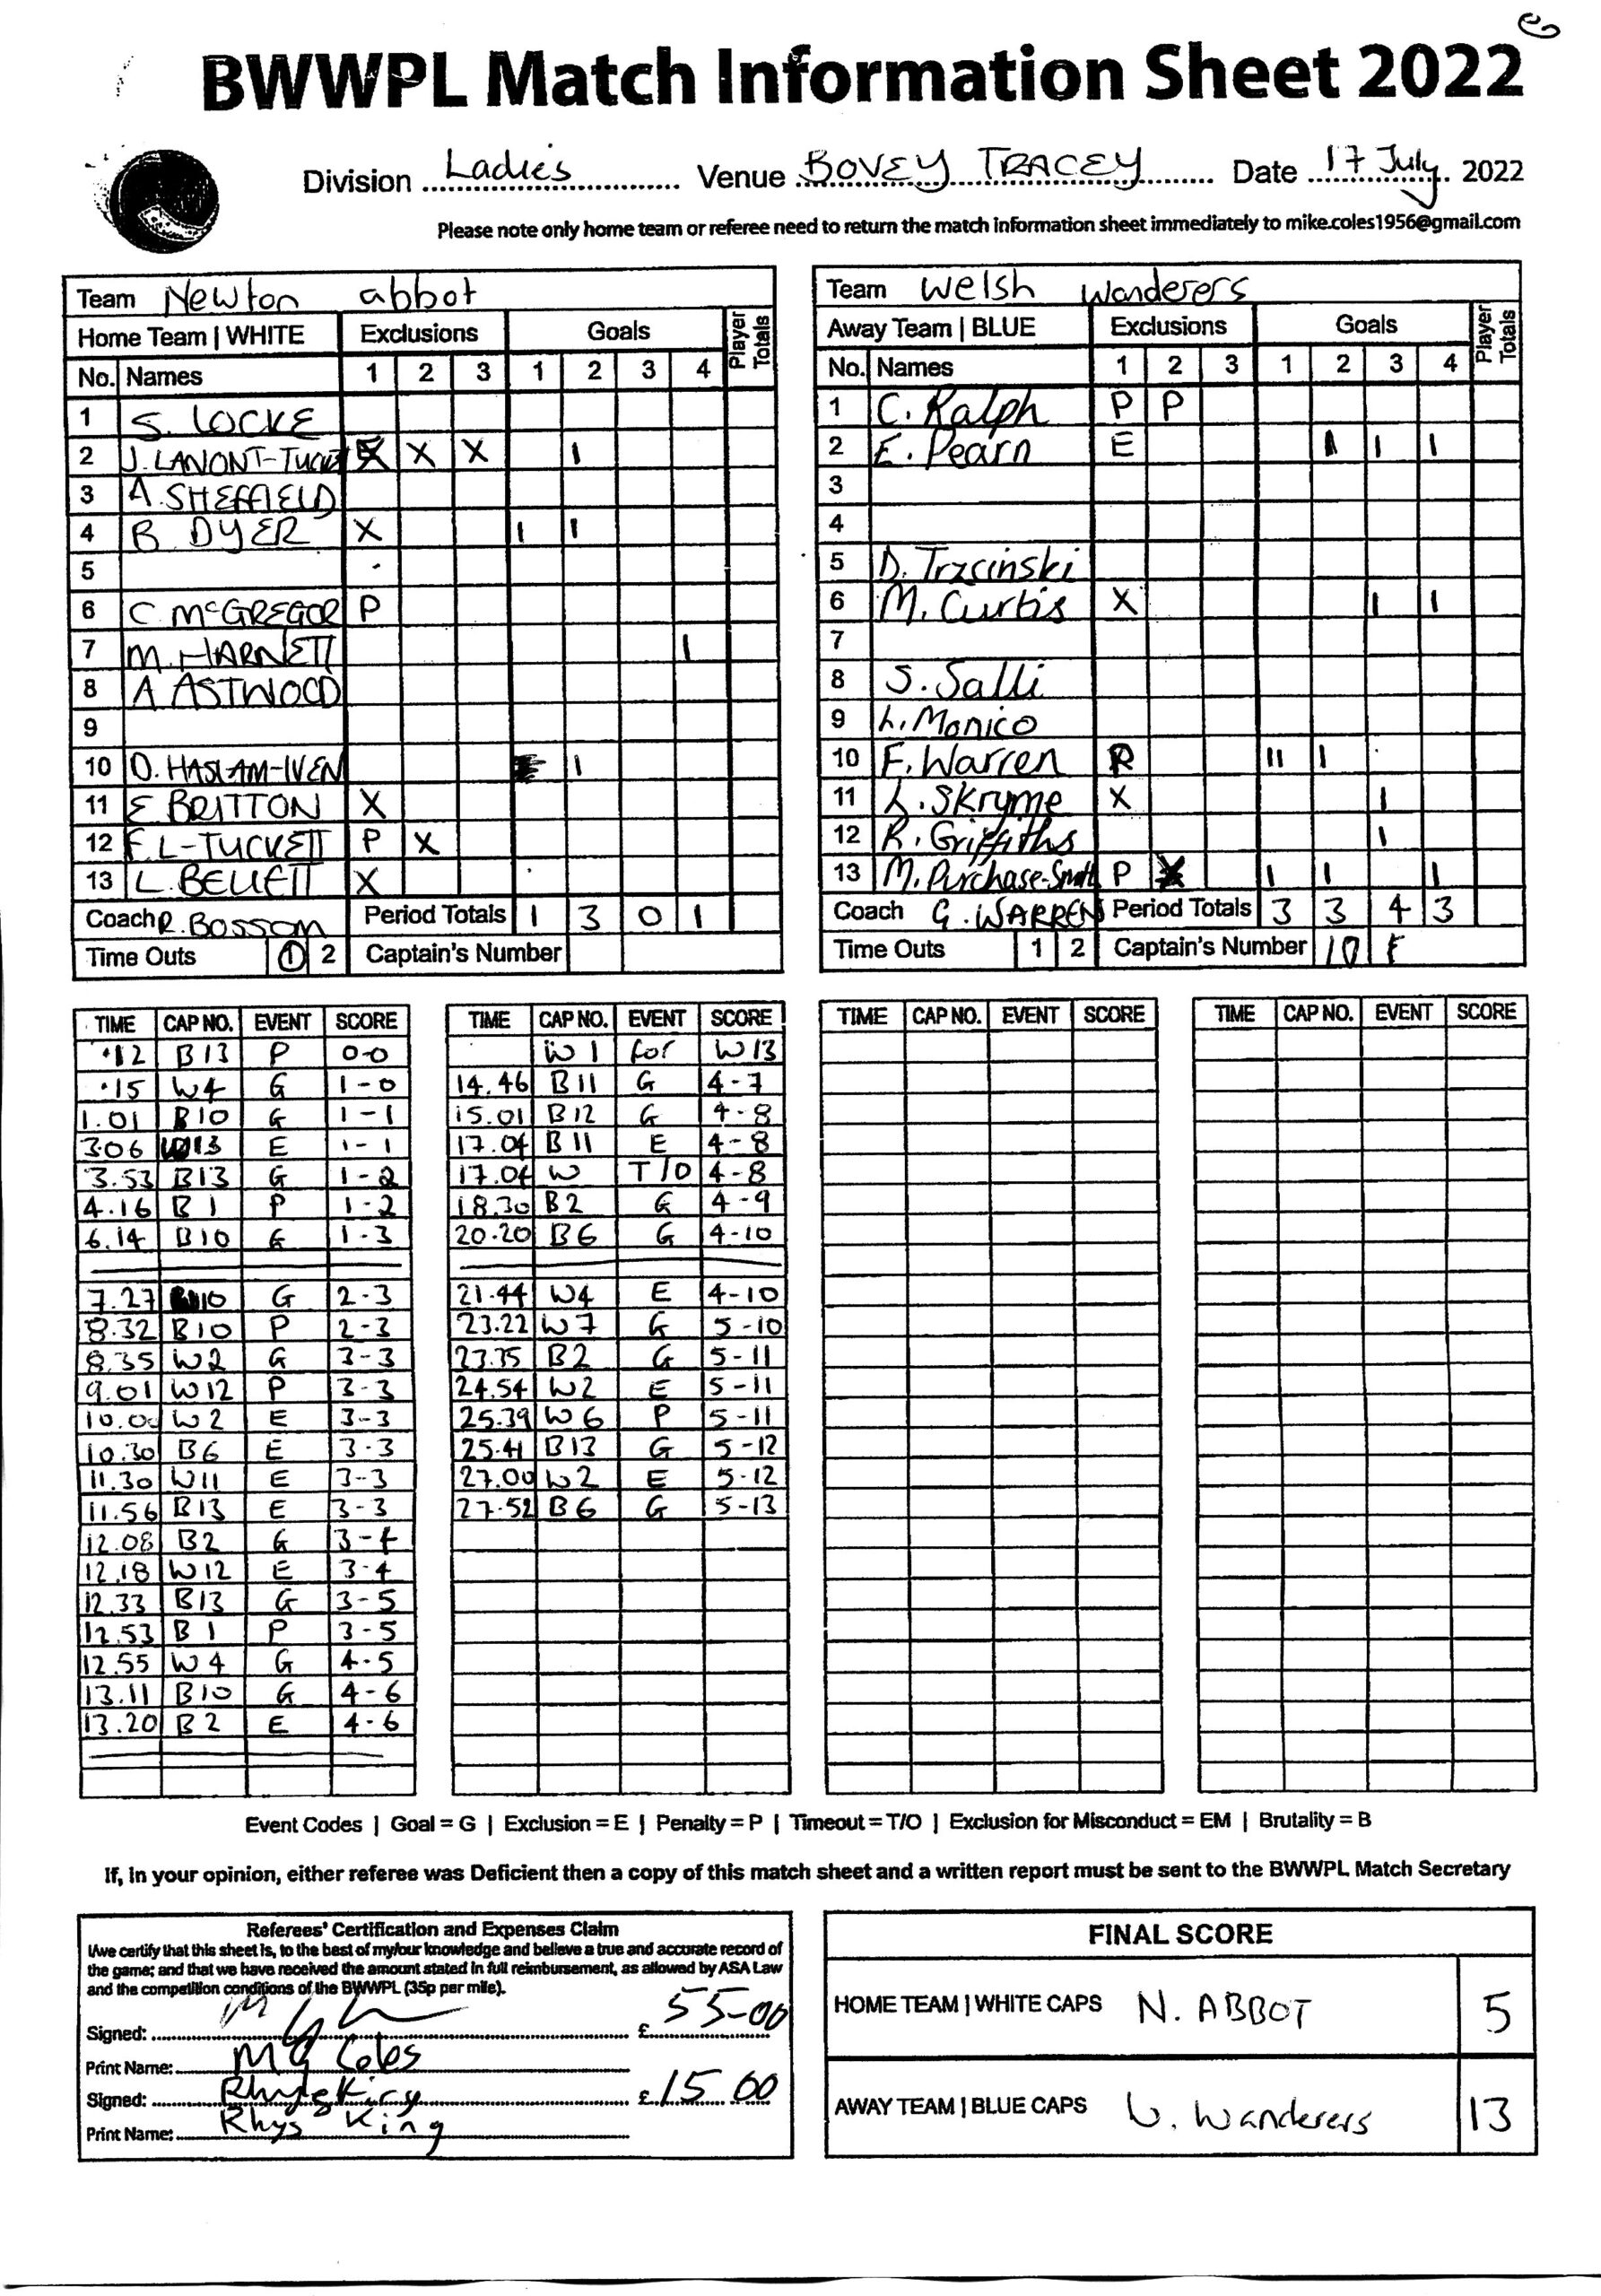 BWWPL Match Information Sheet 2022
Division Ladies Venue BOVEY TRACEY Date 17 July 2022
Please note only home team or referee need to return the match information sheet immediately to mike.coles1956@gmail.com
Team Newton abbot
Home Team | WHITE Exclusions Goals Player Totals
No. Names 1 2 3 1 2 3 4
1 S. LOCKE
2 J. LANONT-TUCKETT X X X 1
3 A. SHEFFIELD
4 B DYER X 1 1
5
6 C McGREGOR P
7 M. HARNETT 1
8 A ASTWOOD
9
10 D. HASLAM-IVEN 1
11 E BRITTON X
12 F. L-TUCKETT P X
13 L. BELLETT X
Coach R. BOSSOM Period Totals 1 3 0 1
Time Outs 1 2 Captain's Number
Team Welsh Wanderers
Away Team | BLUE Exclusions Goals Player Totals
No. Names 1 2 3 1 2 3 4
1 C. Ralph P P
2 E. Pearn E 1 1 1
3
4
5 D. Trzcinski
6 M. Curtis X 1 1
7
8 S. Salli
9 L. Monico
10 F. Warren P 11 1
11 L. Skryme X 1
12 R. Griffiths 1
13 M. Purchase-Smith P X 1 1 1
Coach G. WARREN Period Totals 3 3 4 3
Time Outs 1 2 Captain's Number 10
TIME CAP NO. EVENT SCORE
.12 B13 P 0-0
.15 W4 G 1-0
1.01 B10 G 1-1
3.06 W13 E 1-1
3.53 B13 G 1-2
4.16 B1 P 1-2
6.14 B10 G 1-3
7.27 10 G 2-3
8.32 B10 P 2-3
8.35 W2 G 3-3
9.01 W12 P 3-3
10.00 W2 E 3-3
10.30 B6 E 3-3
11.30 W11 E 3-3
11.56 B13 E 3-3
12.08 B2 G 3-4
12.18 W12 E 3-4
12.33 B13 G 3-5
12.53 B1 P 3-5
12.55 W4 G 4-5
13.11 B10 G 4-6
13.20 B2 E 4-6
TIME CAP NO. EVENT SCORE
W1 for W13
14.46 B11 G 4-7
15.01 B12 G 4-8
17.04 B11 E 4-8
17.04 W T/O 4-8
18.30 B2 G 4-9
20.20 B6 G 4-10
21.44 W4 E 4-10
23.22 W7 G 5-10
23.35 B2 G 5-11
24.54 W2 E 5-11
25.39 W6 P 5-11
25.41 B13 G 5-12
27.00 W2 E 5-12
27.52 B6 G 5-13
TIME CAP NO. EVENT SCORE
TIME CAP NO. EVENT SCORE
Event Codes | Goal = G | Exclusion = E | Penalty = P | Timeout = T/O | Exclusion for Misconduct = EM | Brutality = B
If, in your opinion, either referee was Deficient then a copy of this match sheet and a written report must be sent to the BWWPL Match Secretary
Referees' Certification and Expenses Claim
I/we certify that this sheet is, to the best of my/our knowledge and believe a true and accurate record of
the game; and that we have received the amount stated in full reimbursement, as allowed by ASA Law
and the competition conditions of the BWWPL (35p per mile).
Signed: £ 55-00
Print Name: M Coles
Signed: Rhys King £ 15.00
Print Name: Rhys King
FINAL SCORE
HOME TEAM | WHITE CAPS N. ABBOT 5
AWAY TEAM | BLUE CAPS W. Wanderers 13